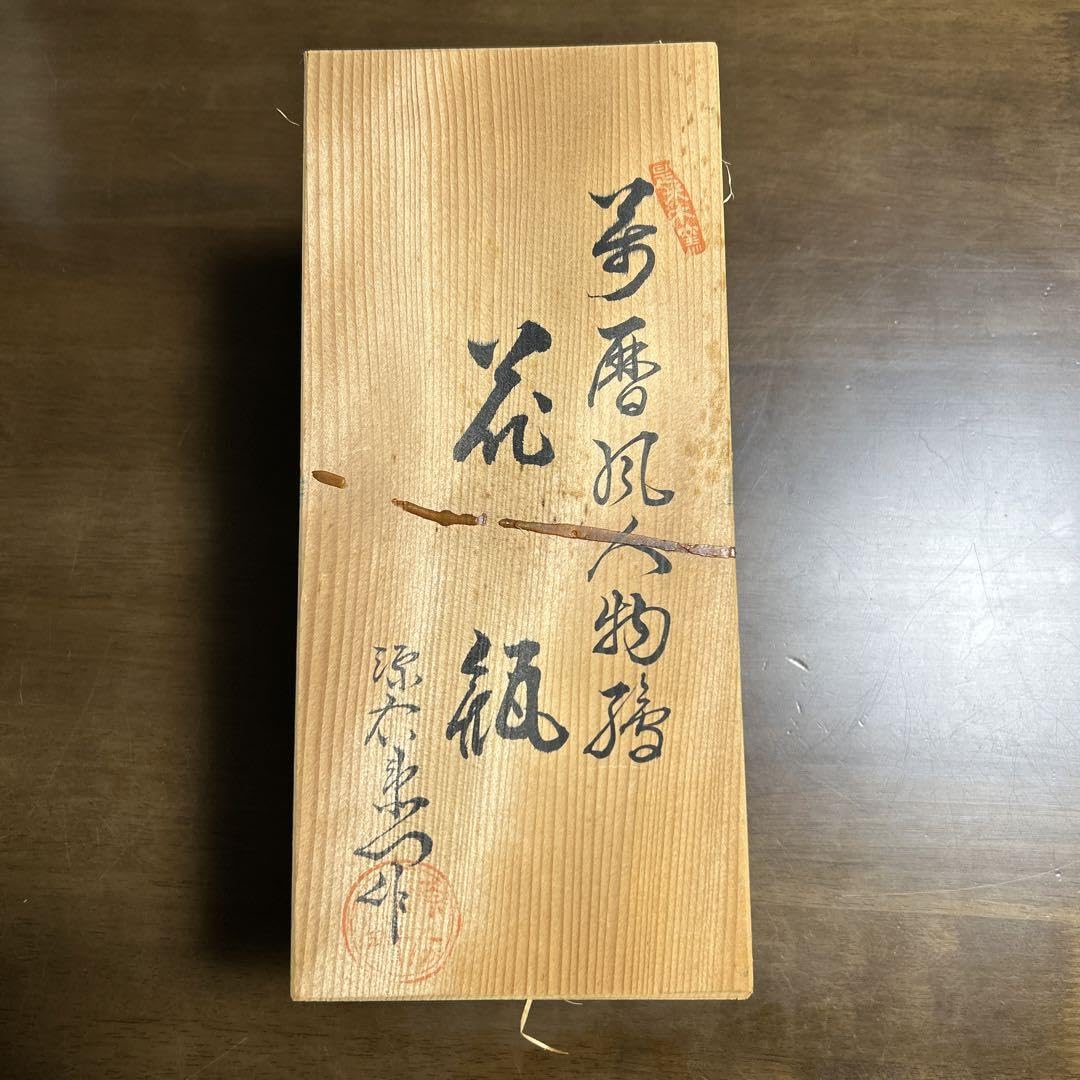 萬暦風人物繪
花瓶
源右衛門作